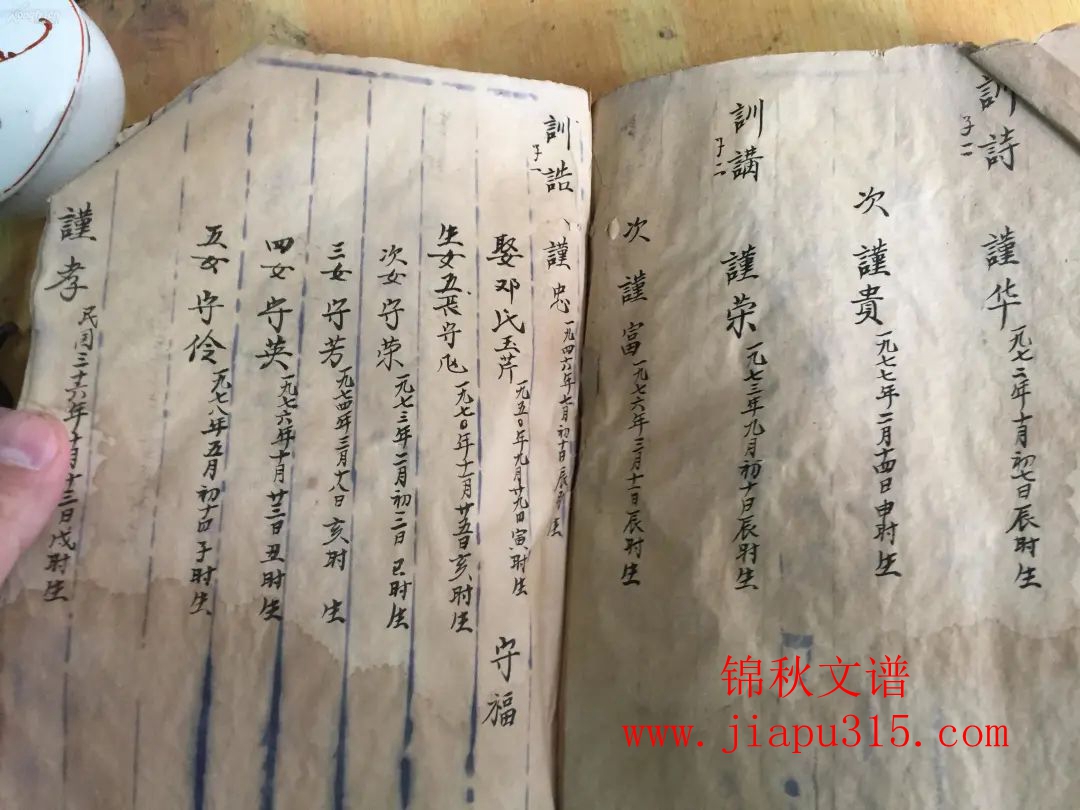 訓詩
子二
謹华一九七二年十月初七日辰时生
次 謹貴一九七七年二月十四日申时生
訓講
子二
謹荣一九七三年九月初十日辰时生
次 謹富一九七六年三月十一日辰时生
訓誥
子一
謹忠一九四六年七月初十日辰时生
娶邓氏玉芹一九五〇年九月廿九日寅时生 守福
生女五長守一九七〇年十一月廿五日亥时生
次女守荣一九七三年二月初二日巳时生
三女守芳一九七四年三月十八日亥时生
四女守英一九七六年十月廿三日丑时生
五女守伶一九七八年五月初十四子时生
謹孝民囯三十六年十月十三日戌时生
锦秋文谱
www.jiapu315.com